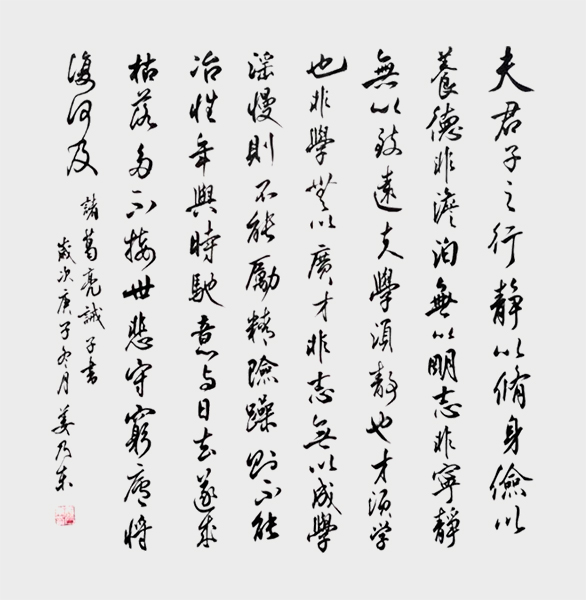 夫君子之行靜以脩身儉以
養德非澹泊無以明志非寧靜
無以致遠夫學須靜也才須学
也非學無以廣才非志無以成學
淫慢則不能勵精險躁則不能
冶性年與時馳意与日去遂成
枯落多不接世悲守窮廬將
復何及
諸葛亮誡子書
歲次庚子冬月姜乃東